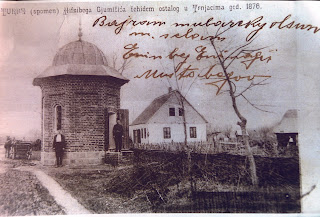 TURBE (spomen) Hifzibega Gjumišića šehidem ostalog u Trnjacima god. 1876.
Bajram mubarecky olsun
m. selam
Emin beg
Mustabegov